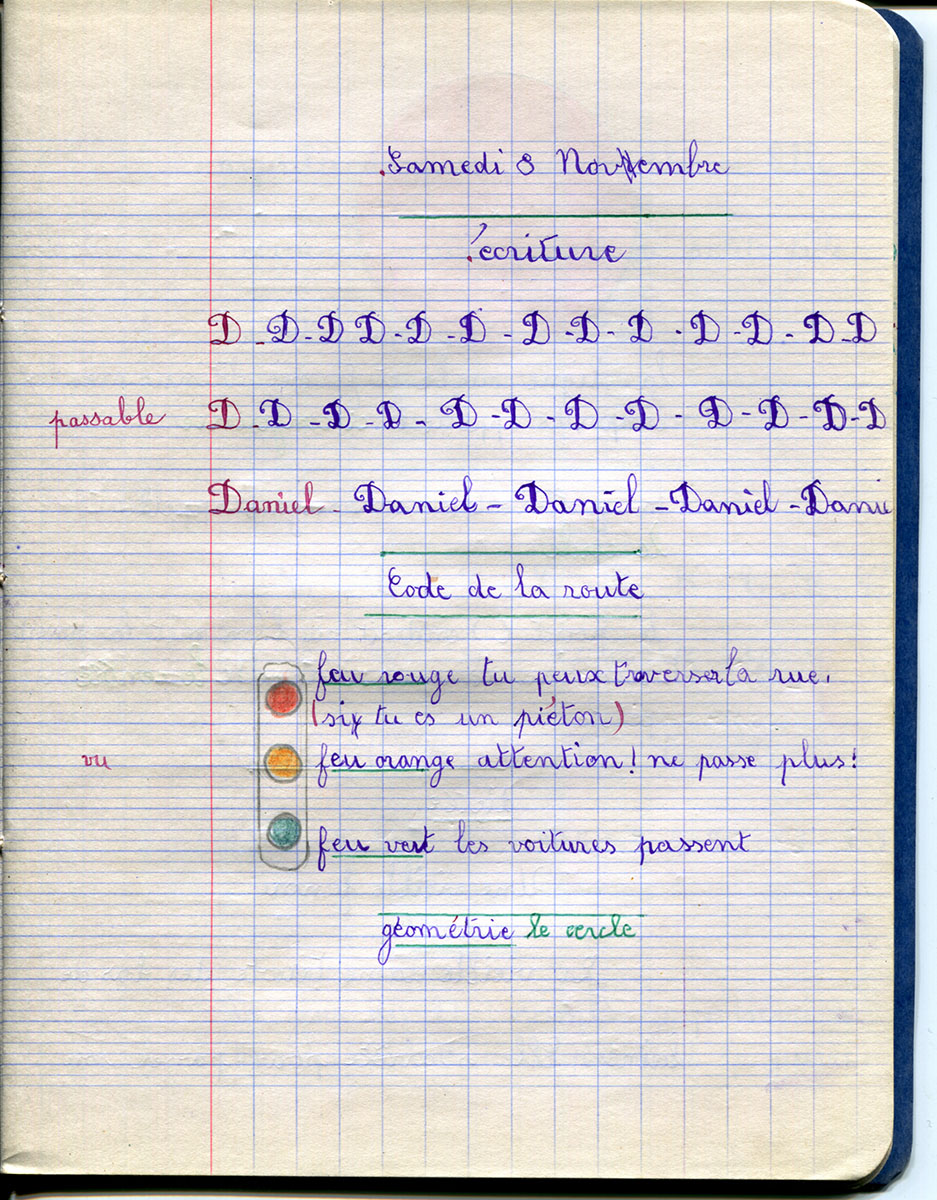 Samedi 8 Novembre
écriture
D - D - D D - D - D - D - D - D - D - D - D - D
passable D - D - D - D - D - D - D - D - D - D - D - D
Daniel - Daniel - Daniel - Daniel - Danie
Code de la route
feu rouge tu peux traverser la rue.
(si tu es un piéton)
vu feu orange attention! ne passe plus!
feu vert les voitures passent
géométrie le cercle